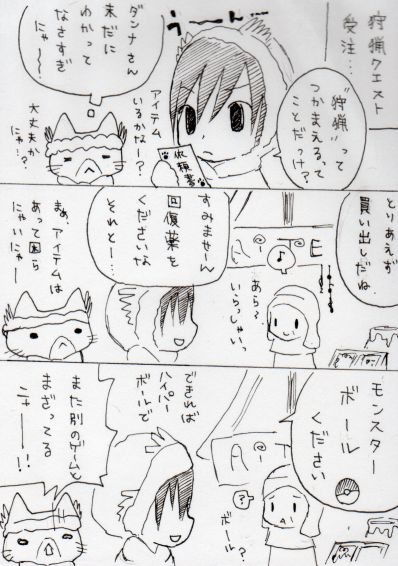 狩猟クエスト
受注…
"狩猟"って
つかまえるって
ことだっけ?
うーん…
依頼書
アイテム
いるかなー?
ダンナさん
未だに
わかって
なさすぎ
にゃー…
大丈夫か
にゃ…?
とりあえず
買い出しだね
♪
あら?
いらっしゃいっ
すみませーん
回復薬を
くださいな
それとー…
まぁアイテムは
あって困ら
にゃいにゃー
モンスター
ボール
ください
?
ボール?
できれば
ハイパー
ボールで
また別のゲームと
まざってる
ニャー!!